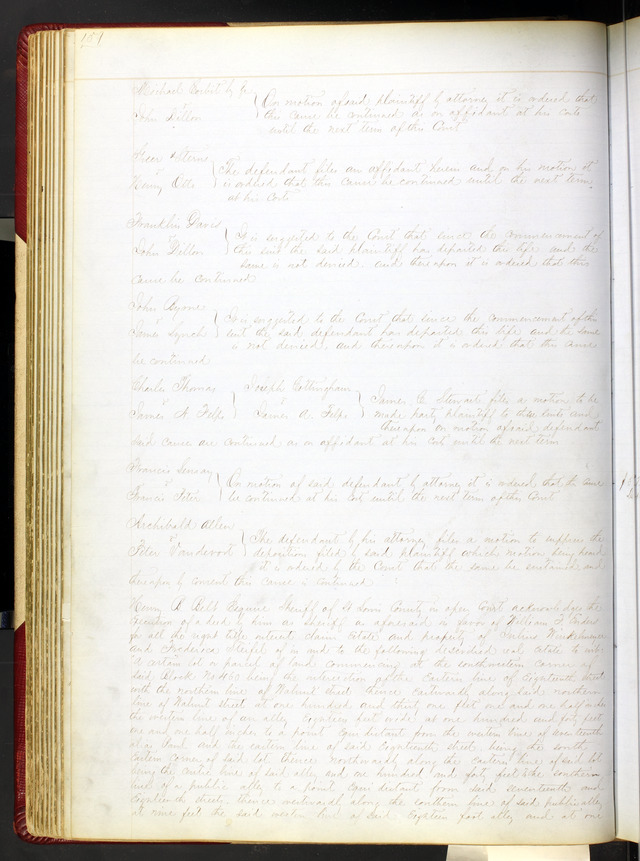 Michael
v
John Dillon
On motion of said plaintiff by attorney it is ordered that
this cause be continued as on affidavit at his costs
until the next term of this Court
v
Henry Otte
The defendant files an affidavit herein and on his motion it
is ordered that this cause be continued until the next term
at his costs
Franklin Davis
v
John Dillon
It is suggested to the Court that since the commencement of
this suit the said plaintiff has departed this life and the
same is not denied and thereupon it is ordered that this
cause be continued
John Byrne
v
James Lynch
It is suggested to the Court that since the commencement of this
suit the said defendant has departed this life and the same
is not denied, and thereupon it is ordered that this cause
be continued
Charles Thomas
v
James A
Joseph Cottingham
v
James A
James C. Stewart files a motion to be
made party plaintiff to these suits and
thereupon on motion of said defendant
said cause are continued as on affidavit at his cost until the next term
Francis
v
Francis
On motion of said defendant by attorney it is ordered that this cause
be continued at his cost until the next term of this Court
Archibald Allen
v
Peter Vandevort
The defendant by his attorney files a motion to suppress the
deposition filed by said plaintiff which motion being heard
it is ordered by the Court that the same be sustained and
thereupon by consent this cause is continued
Henry B Belt Esquire Sheriff of St Louis County in open Court acknowledges the
execution of a deed by him as Sheriff as aforesaid in favor of William
for all the right title interest claim estate and property of Julius
and Frederica of in and to the following described real estate to wit
A certain lot or parcel of land commencing at the southwestern corner of
said Block No 460 being the intersection of the Eastern line of Eighteenth street
with the northern line of Walnut street thence eastwardly along said northern
line of Walnut street at one hundred and thirty one feet one and one half inches
the western line of an alley Eighteen feet wide at one hundred and forty feet
one and one half inches to a point equi distant from the western line of seventeenth
street and the eastern line of said Eighteenth street being the south
eastern corner of said lot thence northwardly along the Eastern line of said lot
being the centre line of said alley and one hundred and forty feet to the southern
line of a public alley to a point equi distant from said seventeenth and
Eighteenth streets thence westwardly along the southern line of said public alley
at nine feet the said western line of said Eighteen foot alley and at one